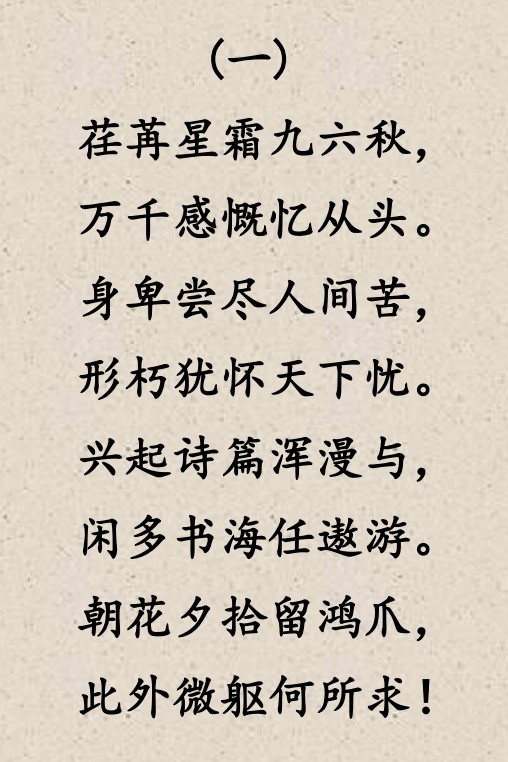 （一）
荏苒星霜九六秋，
万千感慨忆从头。
身卑尝尽人间苦，
形朽犹怀天下忧。
兴起诗篇浑漫与，
闲多书海任遨游。
朝花夕拾留鸿爪，
此外微躯何所求！